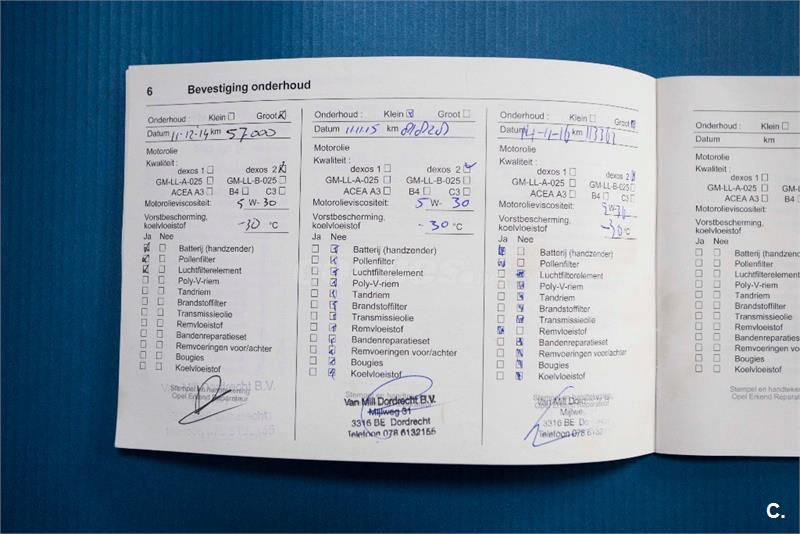 6 Bevestiging onderhoud
Onderhoud : Klein ☐ Groot ☒
Datum 11-12-14 km 57000
Motorolie
Kwaliteit :
dexos 1 ☐ dexos 2 ☒
GM-LL-A-025 ☐ GM-LL-B-025 ☐
ACEA A3 ☐ B4 ☐ C3 ☐
Motorolieviscositeit: 5 W- 30
Vorstbescherming,
koelvloeistof -30 °C
Ja Nee
☒ ☐ Batterij (handzender)
☒ ☐ Pollenfilter
☒ ☐ Luchtfilterelement
☐ ☐ Poly-V-riem
☐ ☐ Tandriem
☐ ☐ Brandstoffilter
☐ ☐ Transmissieolie
☐ ☐ Remvloeistof
☐ ☐ Bandenreparatieset
☐ ☐ Remvoeringen voor/achter
☐ ☐ Bougies
☐ ☐ Koelvloeistof
Stempel en handtekening
Opel Erkend Reparateur
Onderhoud : Klein ☒ Groot ☐
Datum 11.11.15 km
Motorolie
Kwaliteit :
dexos 1 ☐ dexos 2 ☒
GM-LL-A-025 ☐ GM-LL-B-025 ☐
ACEA A3 ☐ B4 ☐ C3 ☐
Motorolieviscositeit: 5 W- 30
Vorstbescherming,
koelvloeistof -30 °C
Ja Nee
☐ ☒ Batterij (handzender)
☐ ☒ Pollenfilter
☐ ☒ Luchtfilterelement
☐ ☒ Poly-V-riem
☐ ☒ Tandriem
☐ ☒ Brandstoffilter
☐ ☒ Transmissieolie
☐ ☒ Remvloeistof
☐ ☒ Bandenreparatieset
☐ ☒ Remvoeringen voor/achter
☐ ☒ Bougies
☐ ☒ Koelvloeistof
Van Mill Dordrecht B.V.
Mijlweg 31
3316 BE Dordrecht
Telefoon 078 6132155
Onderhoud : Klein ☐ Groot ☒
Datum 14-11-16 km
Motorolie
Kwaliteit :
dexos 1 ☐ dexos 2 ☒
GM-LL-A-025 ☐ GM-LL-B-025 ☐
ACEA A3 ☐ B4 ☐ C3 ☐
Motorolieviscositeit: 5 W-30
Vorstbescherming,
koelvloeistof -30 °C
Ja Nee
☒ ☐ Batterij (handzender)
☒ ☐ Pollenfilter
☐ ☒ Luchtfilterelement
☐ ☒ Poly-V-riem
☐ ☒ Tandriem
☐ ☒ Brandstoffilter
☐ ☒ Transmissieolie
☒ ☐ Remvloeistof
☐ ☒ Bandenreparatieset
☐ ☒ Remvoeringen voor/achter
☐ ☒ Bougies
☐ ☒ Koelvloeistof
Van Mill Do
Mijlwe
3316 BE Do
Telefoon 078 6132
Onderhoud : Klein ☐
Datum km
Motorolie
Kwaliteit :
dexos 1 ☐
GM-LL-A-025 ☐ GM-
ACEA A3 ☐ B4
Motorolieviscositeit:
Vorstbescherming,
koelvloeistof
Ja Nee
☐ ☐ Batterij (handzen
☐ ☐ Pollenfilter
☐ ☐ Luchtfilterelement
☐ ☐ Poly-V-riem
☐ ☐ Tandriem
☐ ☐ Brandstoffilter
☐ ☐ Transmissieolie
☐ ☐ Remvloeistof
☐ ☐ Bandenreparaties
☐ ☐ Remvoeringen vo
☐ ☐ Bougies
☐ ☐ Koelvloeistof
Stempel en handteke
Opel Erkend Repara
C.